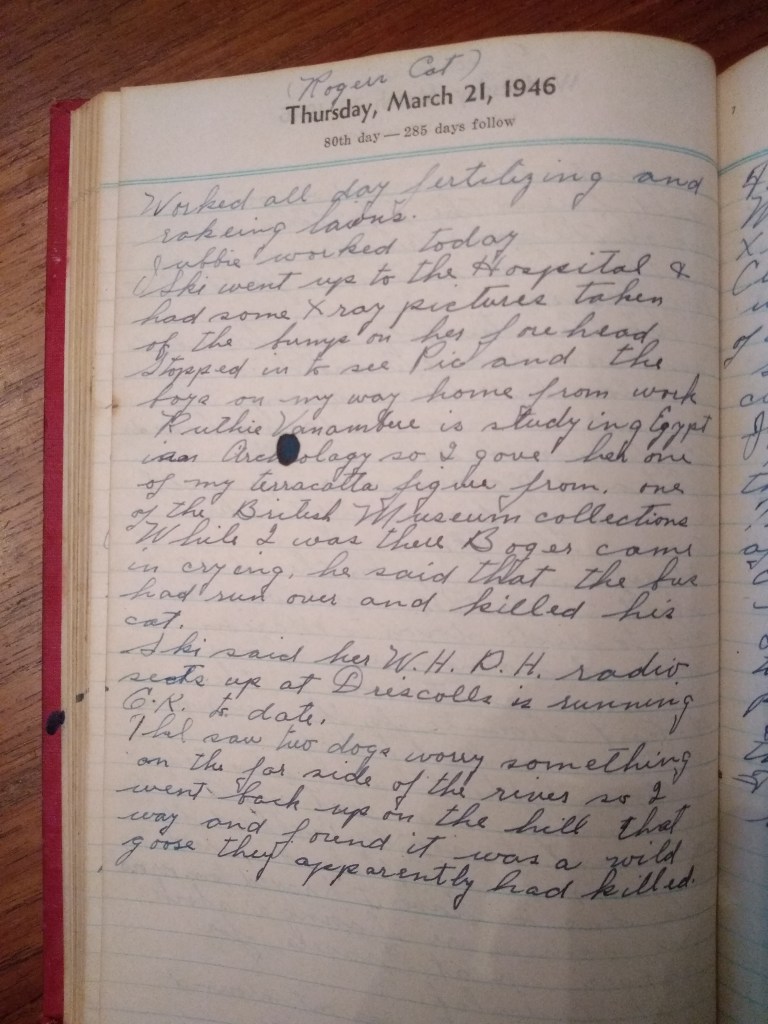 (Roger Cat)
Thursday, March 21, 1946
80th day — 285 days follow
Worked all day fertilizing and
rakeing lawns.
worked today
Ski went up to the Hospital &
had some X ray pictures taken
of the bumps on her forehead
Stopped in to see Pic and the
boys on my way home from work
Ruthie is studying Egypt
Archeology so I gave her one
of my terracatta figure from. one
of the British Museum collections
While I was there Roger came
in crying, he said that the bus
had run over and killed his
cat.
Ski said her W.H.D.H. radio
up at Driscolls is running
O.K. to date.
saw two dogs worry something
on the far side of the river so I
went back up on the hill that
way and found it was a wild
goose they apparently had killed.